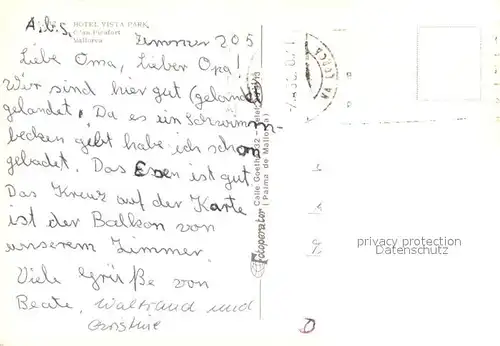 A.b.S.
HOTEL VISTA PARK
C'an Picafort
Mallorca
Zimmer 205
Liebe Oma, Lieber Opa!
Wir sind hier gut (gelande
gelandet. Da es ein Schwimm-
becken gibt habe ich schon
gebadet. Das Essen ist gut.
Das Kreuz auf der Karte
ist der Balkon von
unserem Zimmer.
Viele Grüße von
Beate, Waltraud und
Christine
Fotoperator
Calle Goethe, 32 -
(Palma de Mallorca)
privacy protection
Datenschutz